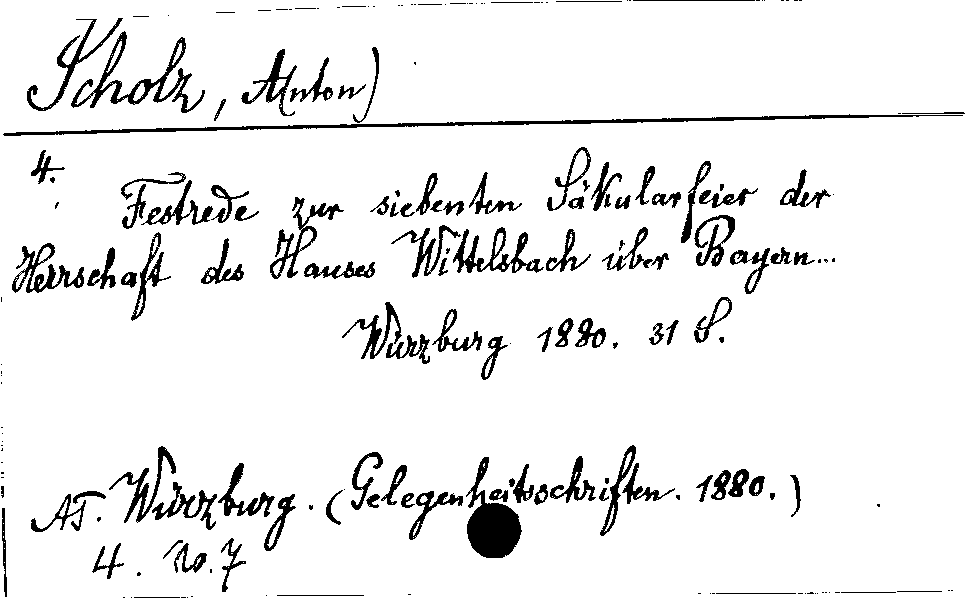 Scholz, A(nton)
4.
Festrede zur siebenten Säkularfeier der
Herrschaft des Hauses Wittelsbach über Bayern...
Würzburg 1880. 31 S.
AT. Würzburg. (Gelegenheitsschriften. 1880.)
4. No. 7